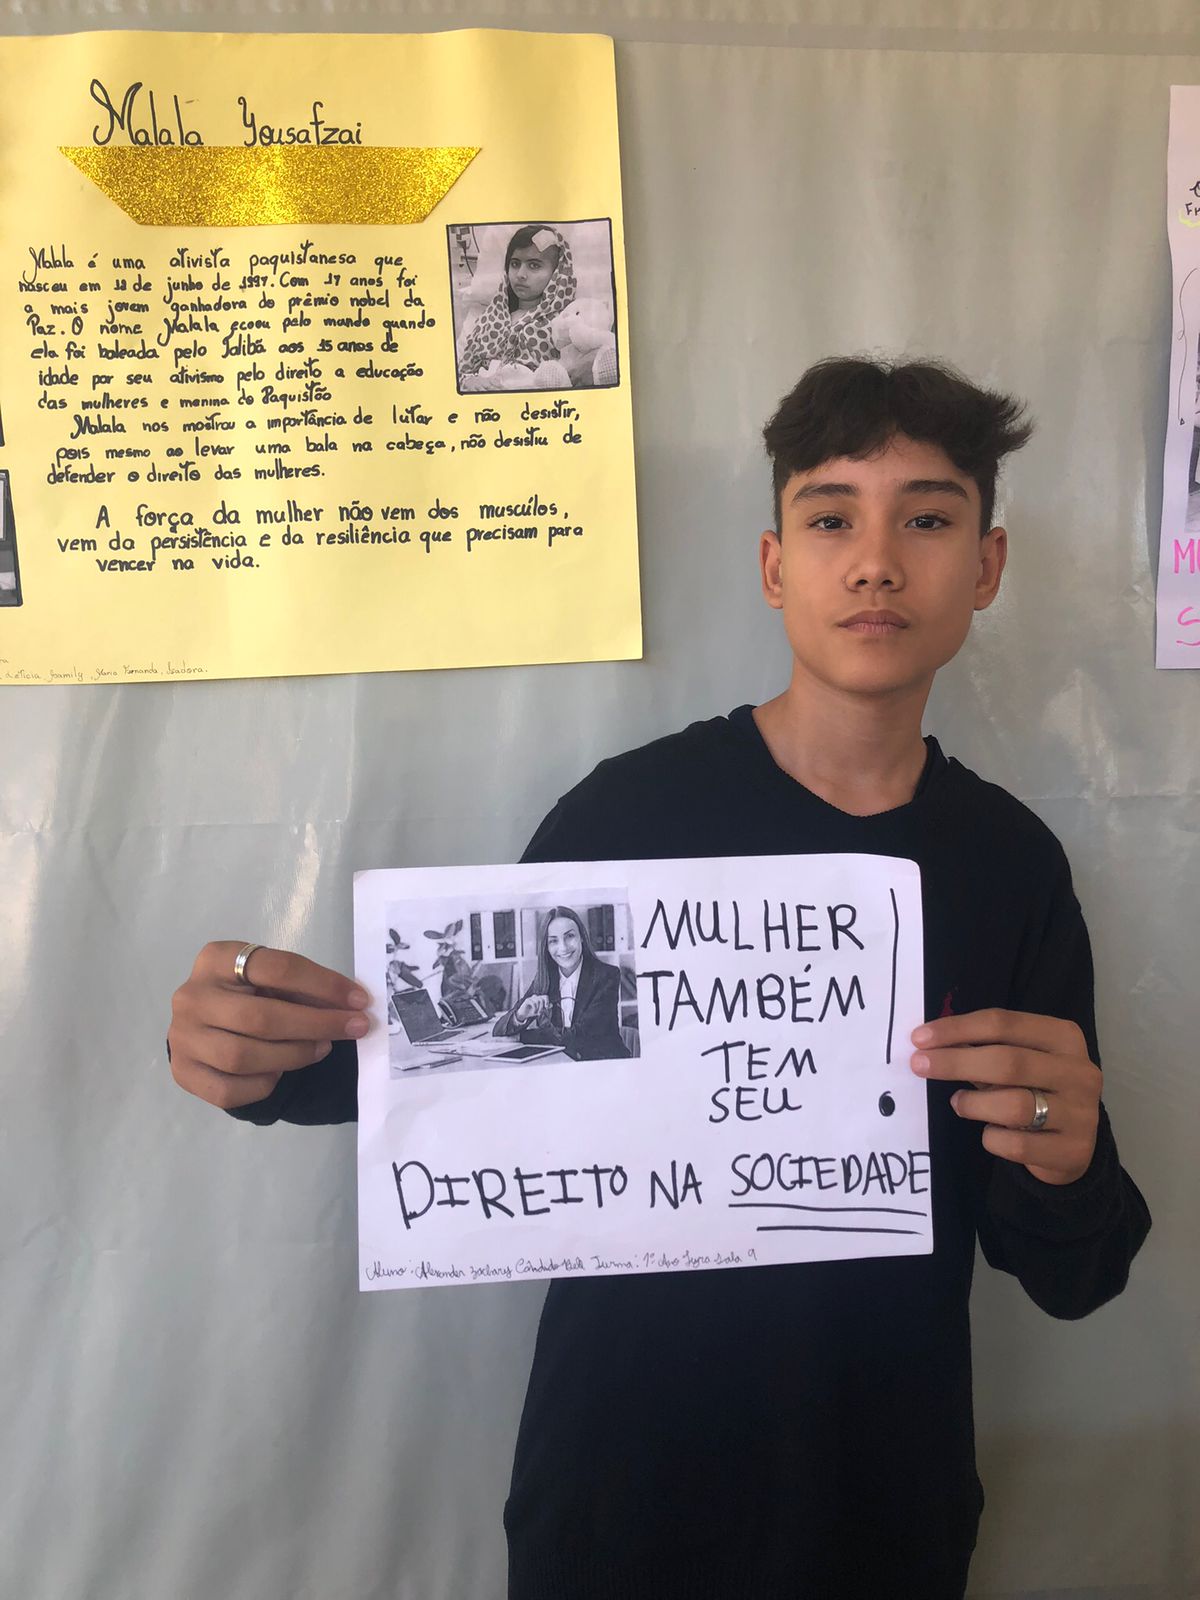 Malala Yousafzai
Malala é uma ativista paquistanesa que
nasceu em 12 de junho de 1997. Com 17 anos foi
a mais jovem ganhadora do prêmio nobel da
Paz. O nome Malala ecoou pelo mundo quando
ela foi baleada pelo Talibã aos 15 anos de
idade por seu ativismo pelo direito a educação
das mulheres e menina do Paquistão
Malala nos mostrou a importância de lutar e não desistir,
pois mesmo ao levar uma bala na cabeça, não desistiu de
defender o direito das mulheres.
A força da mulher não vem dos musculos,
vem da persistência e da resiliência que precisam para
vencer na vida.
Letícia, Maria Fernanda, Isadora.
MULHER
TAMBÉM
TEM
SEU !
DIREITO NA SOCIEDADE
Aluno: Alexander Zachary Cândido Turma: 1º Ano Sala 9